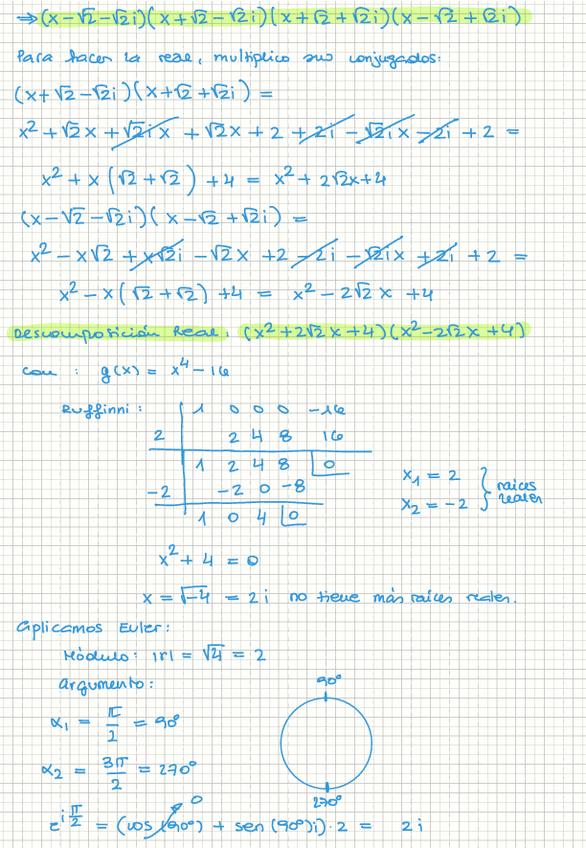 ⇒ (x-√2-√2i)(x+√2-√2i)(x+√2+√2i)(x-√2+√2i)
Para hacer la real, multiplico sus conjugados:
(x+√2-√2i)(x+√2+√2i) =
x² + √2x + √2ix + √2x + 2 + 2i - √2ix - 2i + 2 =
x² + x(√2+√2) + 4 = x² + 2√2x + 4
(x-√2-√2i)(x-√2+√2i) =
x² - x√2 + x√2i - √2x + 2 - 2i - √2ix + 2i + 2 =
x² - x(√2+√2) + 4 = x² - 2√2x + 4
Descomposición Real: (x²+2√2x+4)(x²-2√2x+4)
con : g(x) = x⁴ - 16
Ruffinni : 1 0 0 0 -16
2 2 4 8 16
1 2 4 8 0
-2 -2 0 -8
1 0 4 0
x₁ = 2
x₂ = -2
raíces reales
x² + 4 = 0
x = √-4 = 2i no tiene más raíces reales.
Aplicamos Euler:
Módulo: |r| = √4 = 2
argumento:
α₁ = π/2 = 90º
α₂ = 3π/2 = 270º
90º
270º
0
e^(i π/2) = (cos(90º) + sen(90º)i)·2 = 2i